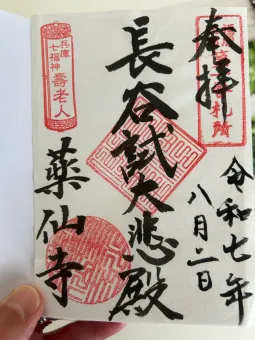 奉拝
札所
令和七年
八月二日
長谷試大悲殿
兵庫
七福神
壽老人
薬仙寺